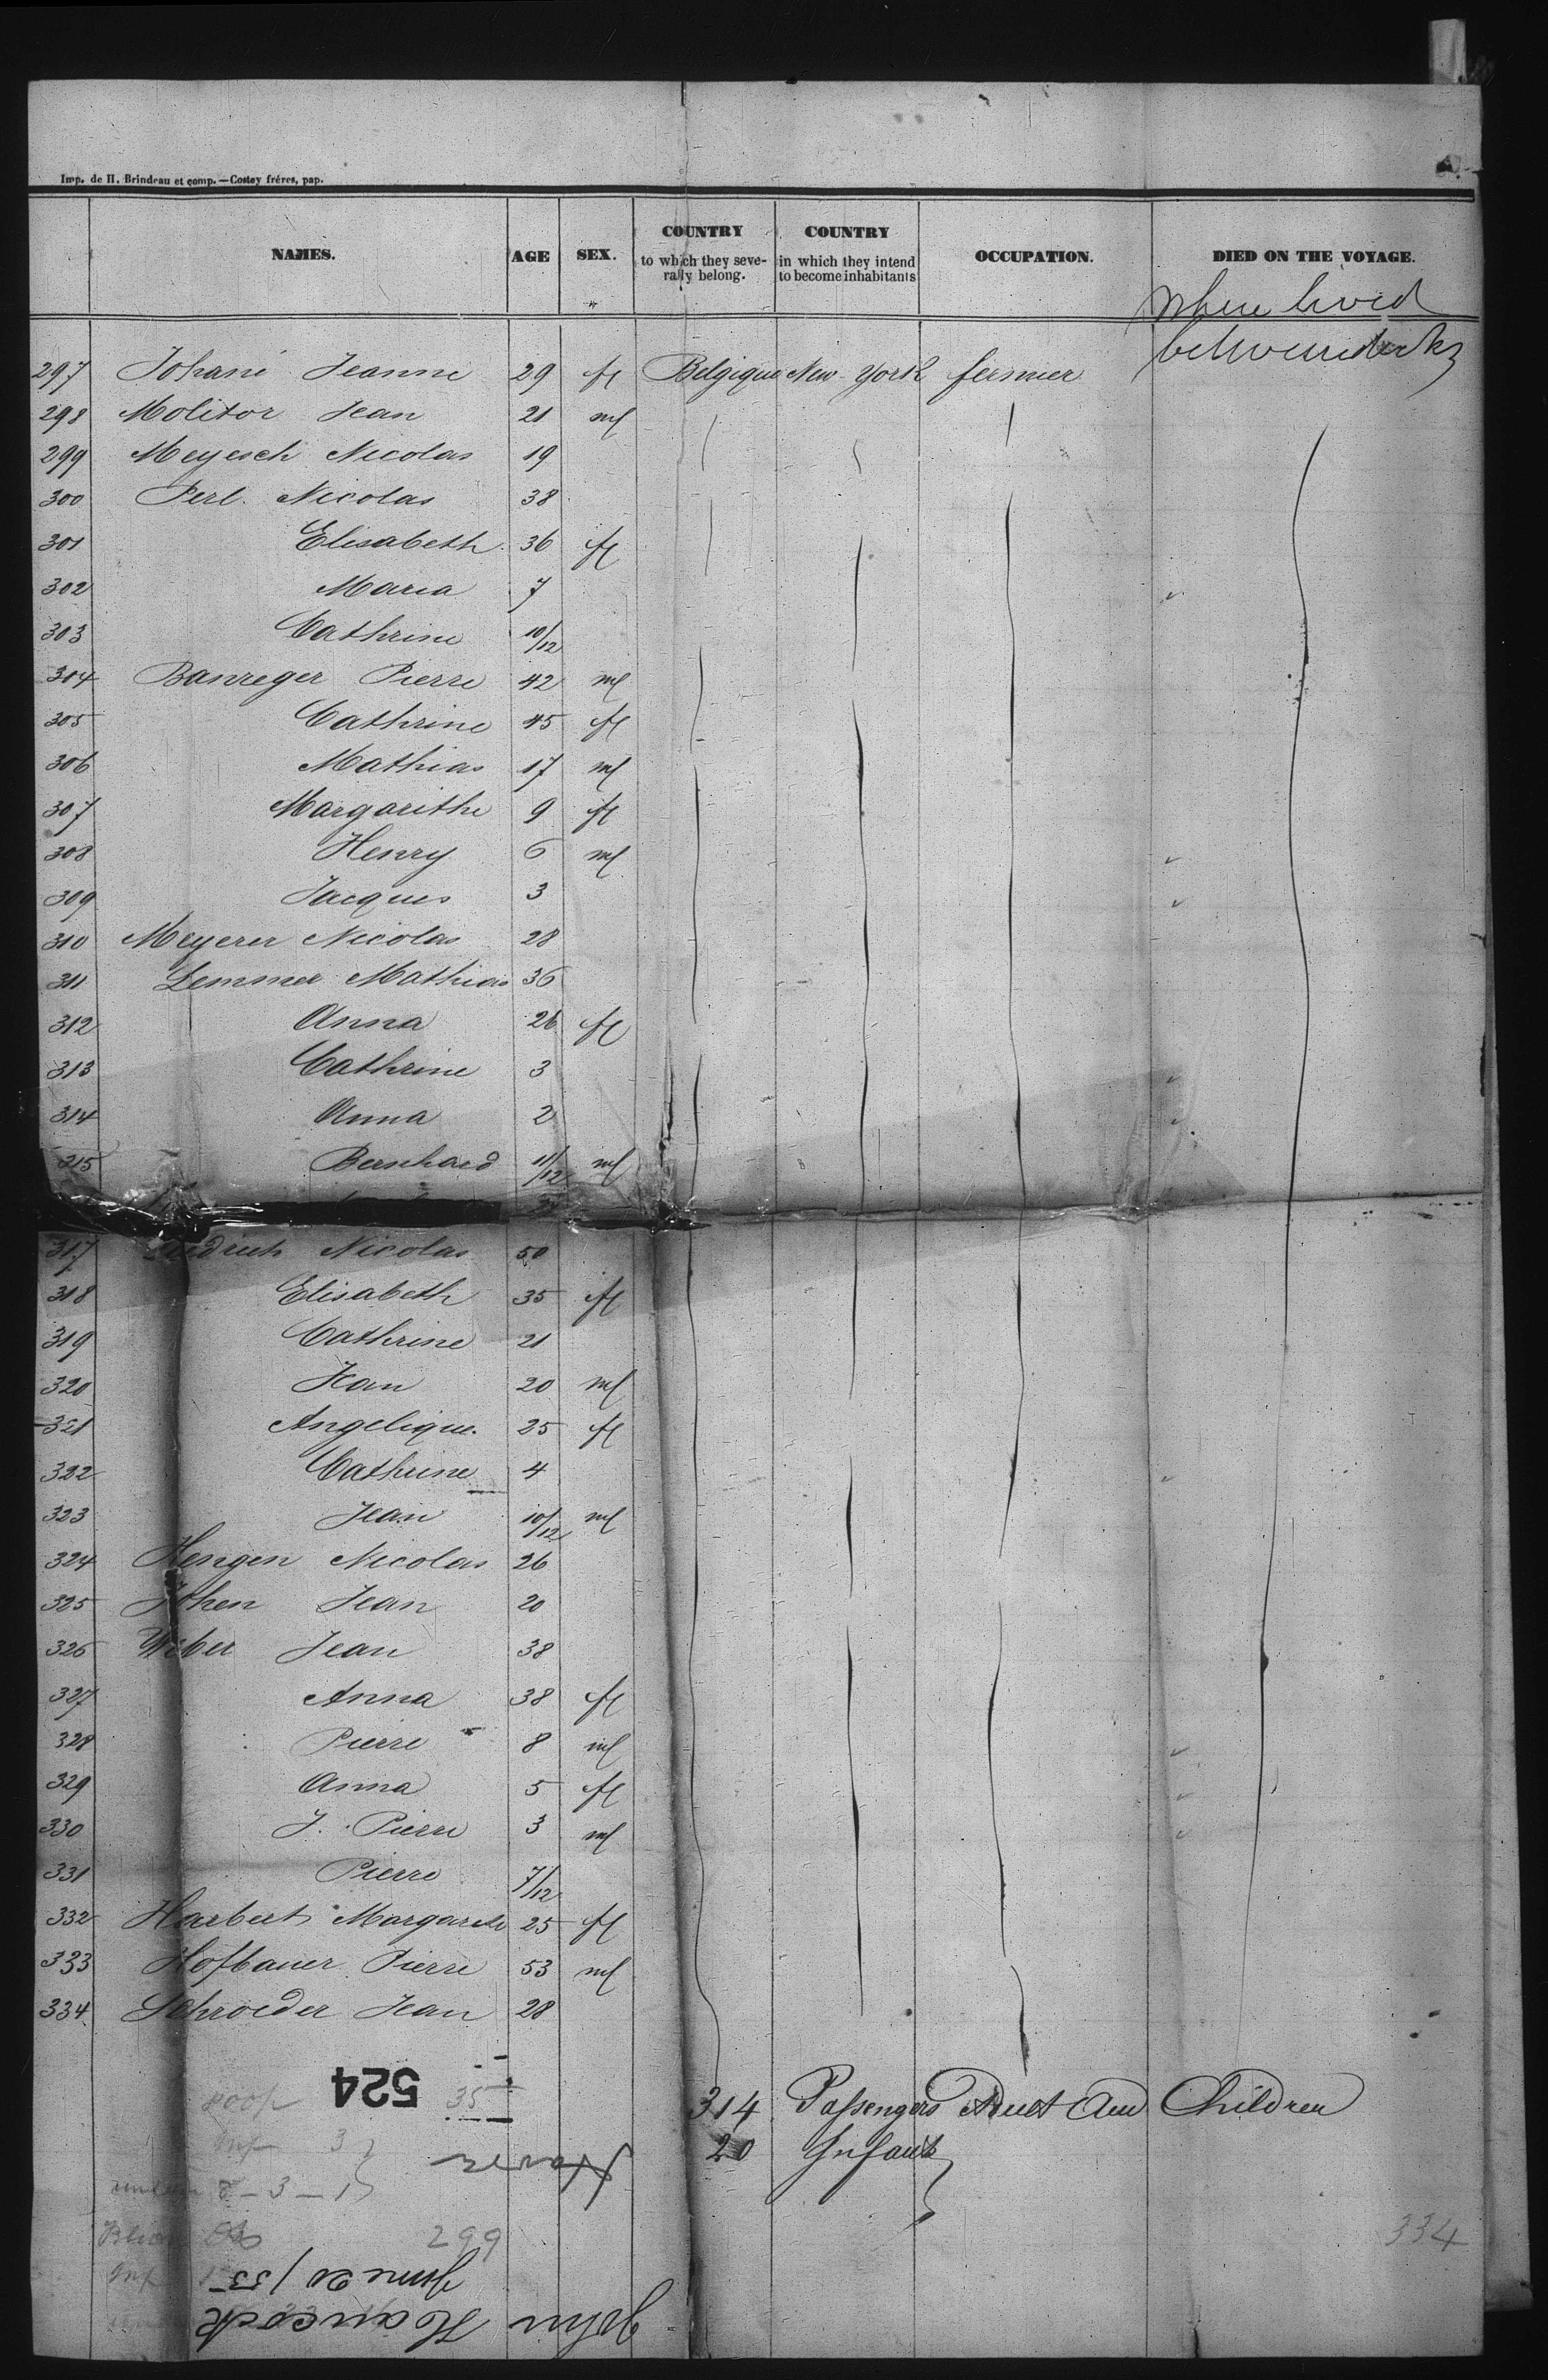 Imp. de H. Brindeau et comp.—Costey fréres, pap.
NAMES. AGE SEX. COUNTRY to which they seve- rally belong. COUNTRY in which they intend to become inhabitants OCCUPATION. DIED ON THE VOYAGE.
Where lived
between decks
297 Johani Jeanne 29 fl Belgique New-York fermier
298 Molitor Jean 21 ml
299 Meyesch Nicolas 19
300 Perl. Nicolas 38
301 Elisabeth 36 fl
302 Maria 7
303 Cathrine 10/12
304 Banreger Pierre 42 ml
305 Cathrine 45 fl
306 Mathias 17 ml
307 Margarithe 9 fl
308 Henry 6 ml
309 Jacques 3
310 Meyerer Nicolas 28
311 Lemmer Mathias 36
312 Anna 26 fl
313 Cathrine 3
314 Anna 2
315 Bernhard 11/12 ml
317 Nicolas 50
318 Elisabeth 35 fl
319 Cathrine 21
320 Jean 20 ml
321 Angelique. 25 fl
322 Cathrine 4
323 Jean 10/12 ml
324 Hengen Nicolas 26
325 Johen Jean 20
326 Weber Jean 38
327 Anna 38 fl
328 Pierre 8 ml
329 Anna 5 fl
330 J. Pierre 3 ml
331 Pierre 7/12
332 Harbert Margarethe 25 fl
333 Hofbauer Pierre 53 ml
334. Schroeder Jean 28
314 Passengers Adult and Children
20 Infants
334
524
Havre
299
June 20/53
John Hancock